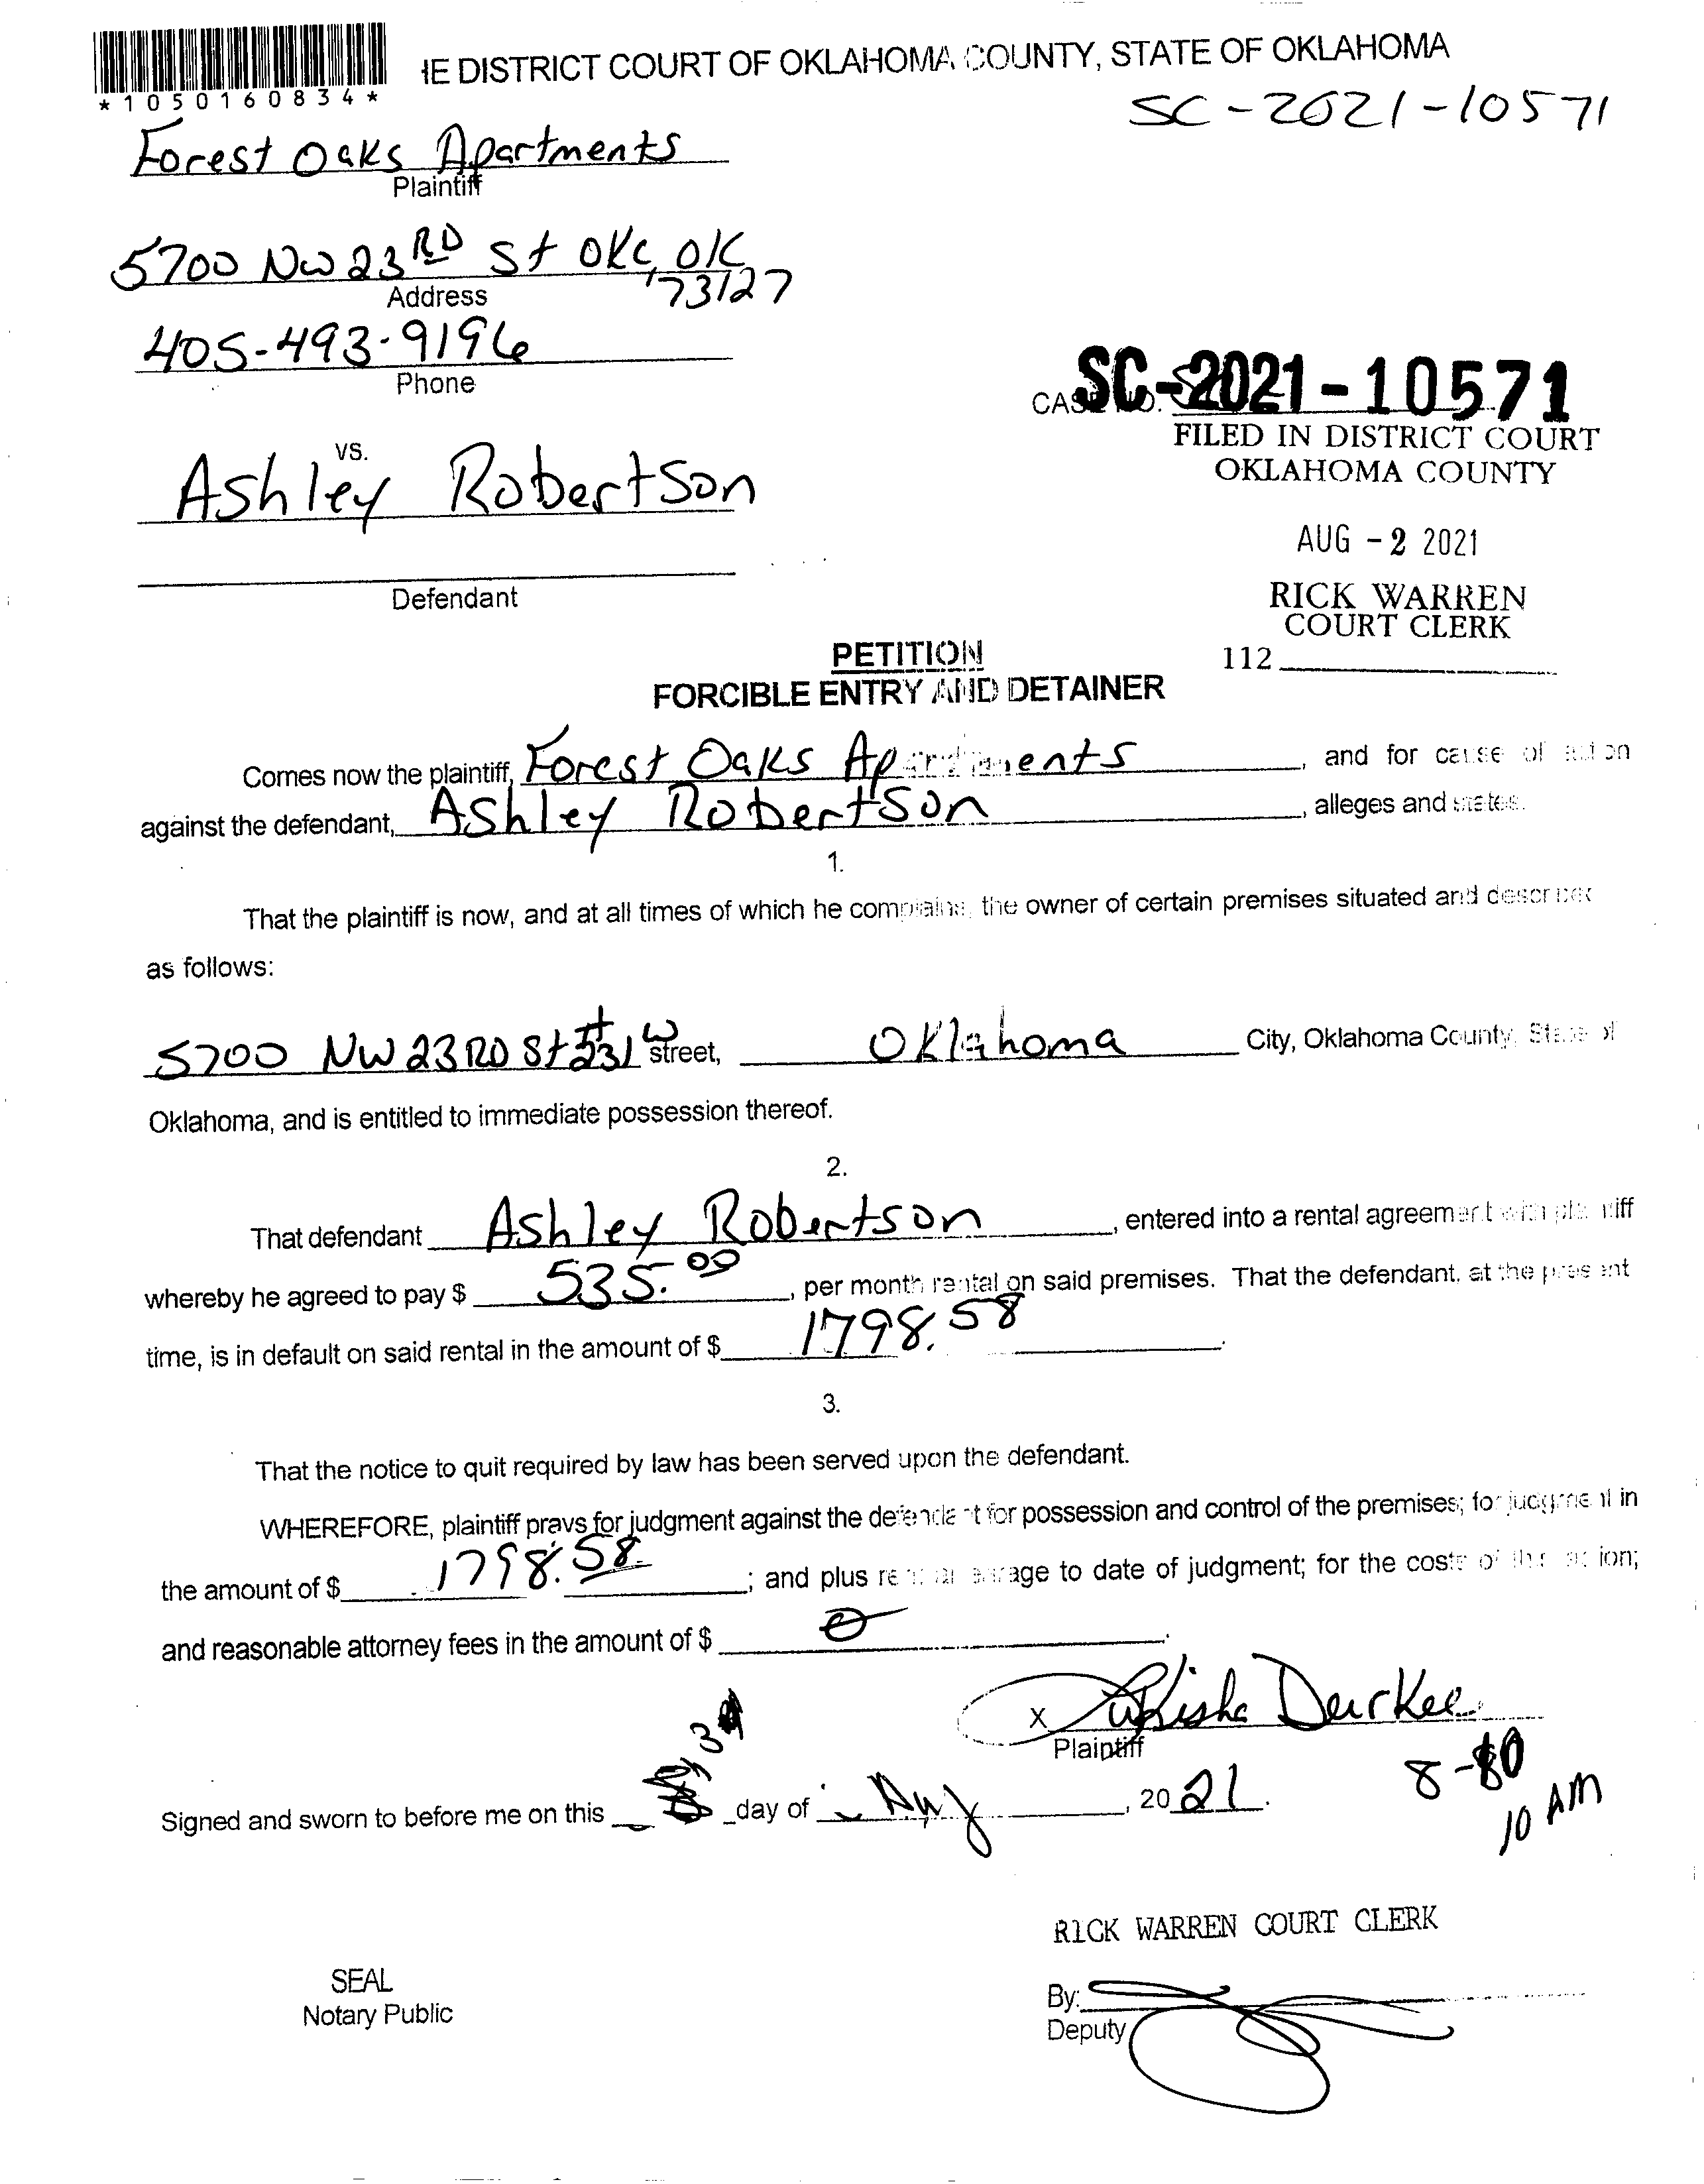 *1050160834*
IE DISTRICT COURT OF OKLAHOMA COUNTY, STATE OF OKLAHOMA
SC-2021-10571
Forest Oaks Apartments
Plaintiff
5700 NW 23RD St OKC, OK
73127
Address
405-493-9196
Phone
SC-2021-10571
CASE NO.
FILED IN DISTRICT COURT
OKLAHOMA COUNTY
vs.
Ashley Robertson
AUG -2 2021
Defendant
RICK WARREN
COURT CLERK
112
PETITION
FORCIBLE ENTRY AND DETAINER
Comes now the plaintiff, Forest Oaks Apartments, and for cause of action
against the defendant, Ashley Robertson, alleges and states:
1.
That the plaintiff is now, and at all times of which he complains, the owner of certain premises situated and described
as follows:
5700 NW 23RD St #231 W street, Oklahoma City, Oklahoma County, State of
Oklahoma, and is entitled to immediate possession thereof.
2.
That defendant Ashley Robertson, entered into a rental agreement with plaintiff
whereby he agreed to pay $ 535.00, per month rental on said premises. That the defendant, at the present
time, is in default on said rental in the amount of $ 1798.58.
3.
That the notice to quit required by law has been served upon the defendant.
WHEREFORE, plaintiff prays for judgment against the defendant for possession and control of the premises; for judgment in
the amount of $ 1798.58; and plus rental to date of judgment; for the costs of this action;
and reasonable attorney fees in the amount of $
x Durkee
Plaintiff
8-
10 AM
Signed and sworn to before me on this day of Aug, 2021.
RICK WARREN COURT CLERK
SEAL
Notary Public
By:
Deputy